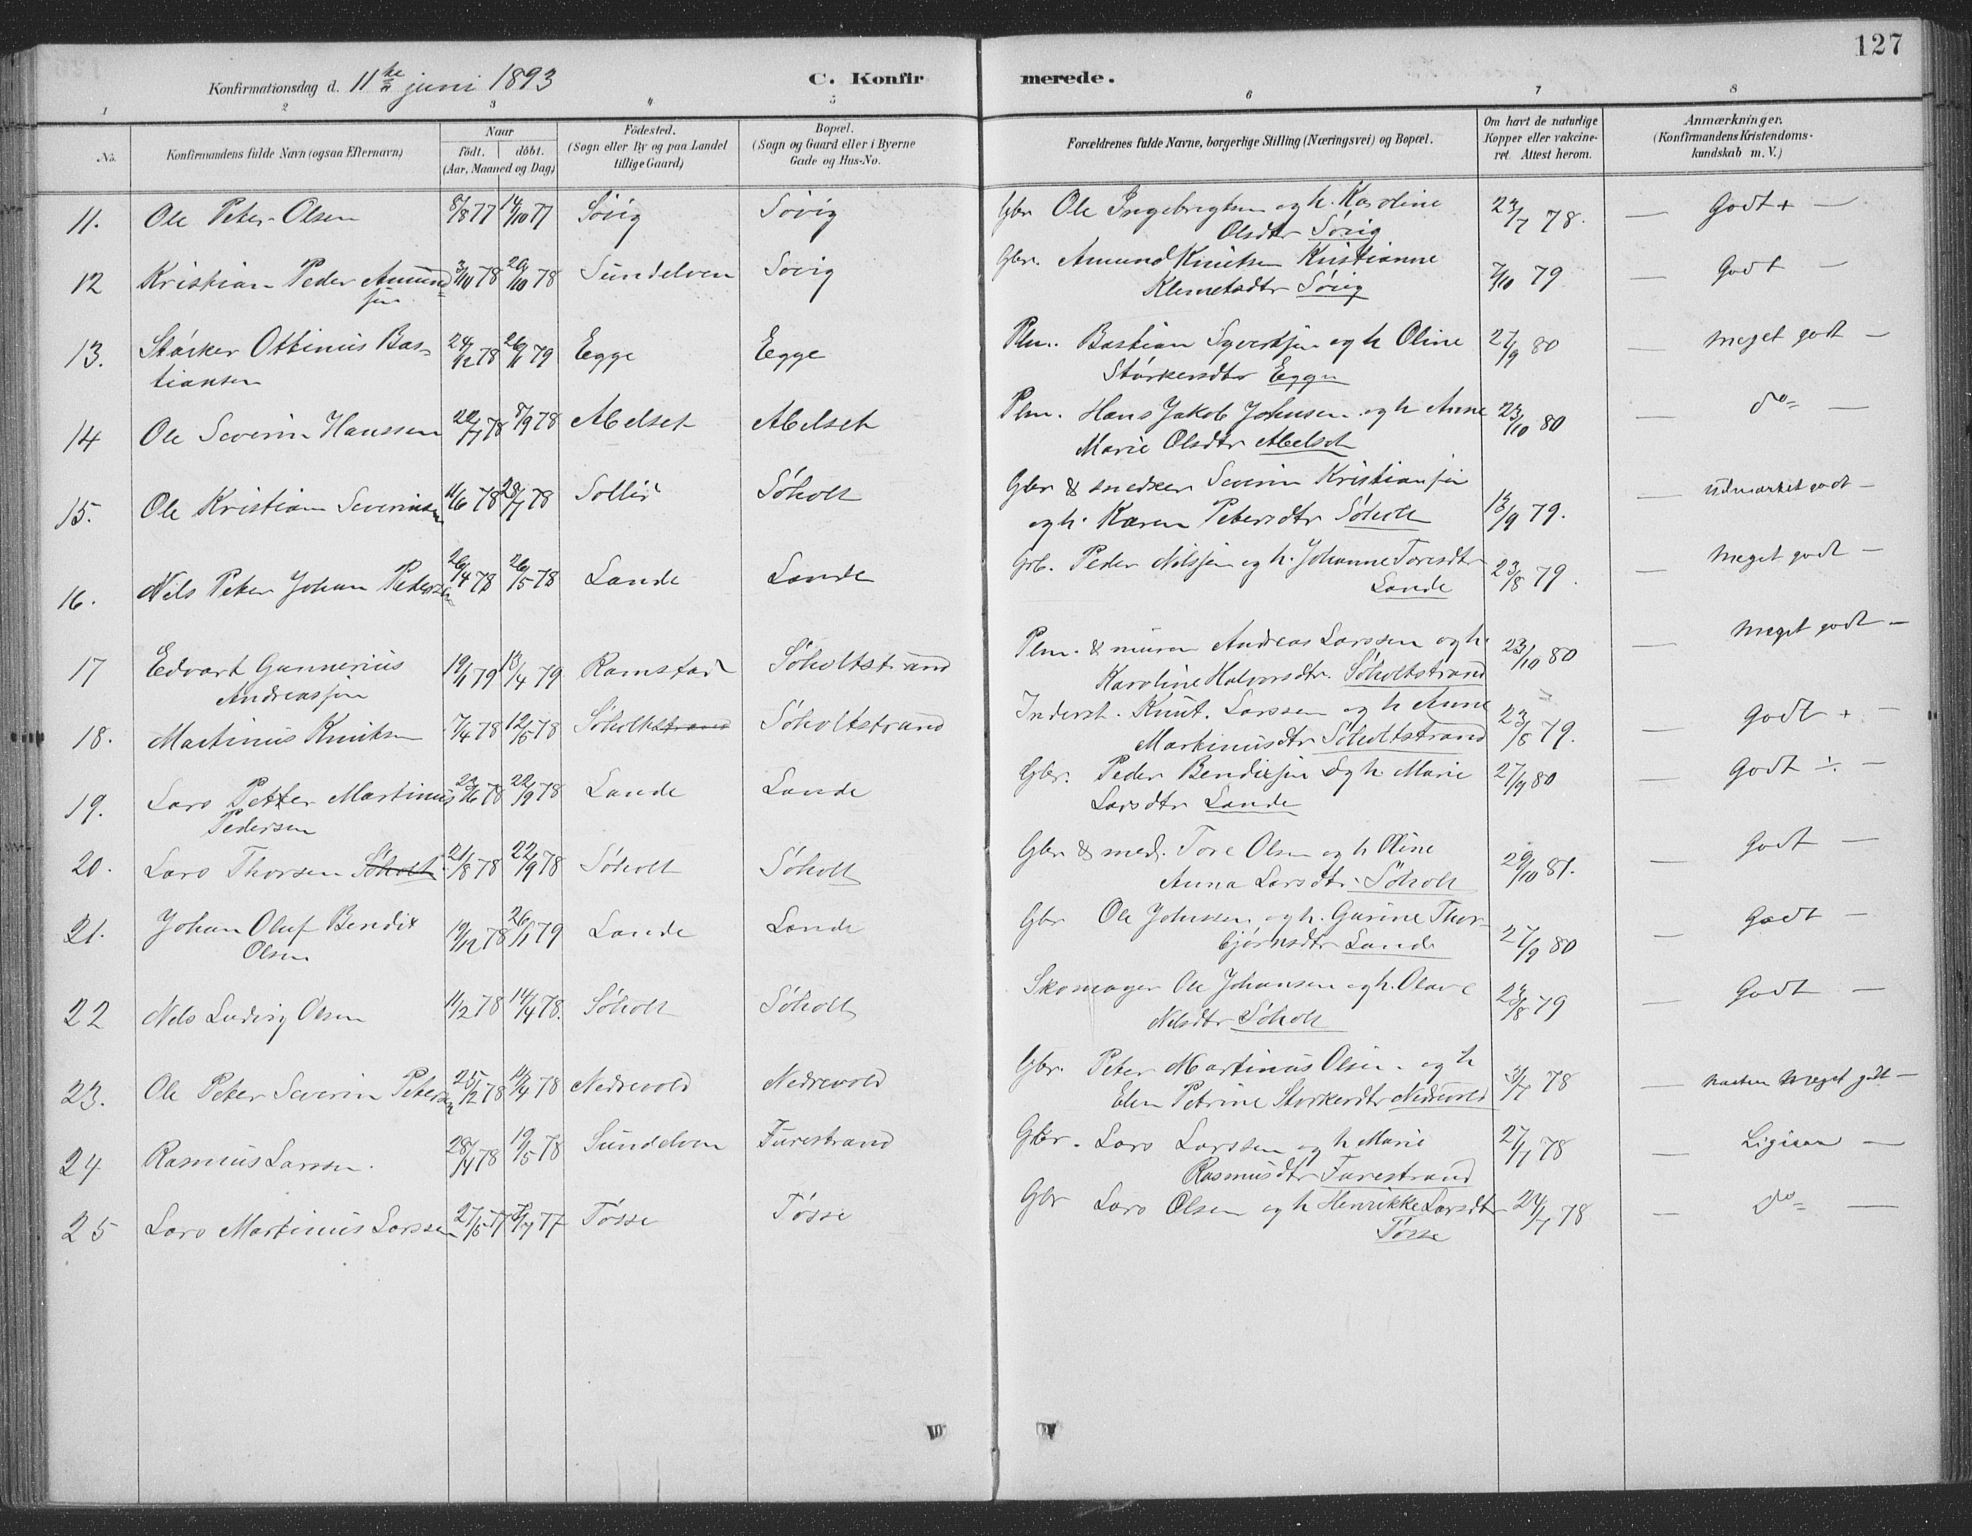 127
Konfirmationsdag d. 11te juni 1893 C. Konfirmerede.
1 2 3 4 5 6 7 8
No. Konfirmandens fulde Navn (ogsaa Efternavn) Naar födt. döbt. (Aar, Maaned og Dag) Födested. (Sogn eller By og paa Landet tillige Gaard) Bopæl. (Sogn og Gaard eller i Byerne Gade og Hus-No. Forældrenes fulde Navne, borgerlige Stilling (Næringsvei) og Bopæl. Om havt de naturlige Kopper eller vakcineret. Attest herom. Anmærkninger. (Konfirmandens Kristendomskundskab m. V.)
11. Ole Peter Olsen 8/8 77 14/10 77 Søvig Søvig Gbr Ole Ingebregtsen og h. Karoline 24/7 78. — Godt + —
Olsdtr Søvig
12 Kristian Peder Amund= 3/10 78 20/10 78 Sundelven Søvig Gbr. Amund Knutsen Kristianne 7/10 79. — Godt —
sen Klemetsdtr Søvig
13. Størker Ottinus Bas- 24/12 78 26/1 79 Egge Egge Plm. Bastian Syvertsen og h Oline 27/9 80 — Meget godt —
tiansen Størkersdtr Egge
14 Ole Severin Hanssen 22/7 78 8/9 78 Abelset Abelset Plm. Hans Jakob Johnsen og h Anne 23/10 80 — do= —
Marie Olsdtr Abelset
15. Ole Kristian Severinsen 11/6 78 28/7 78 Sollid Søholt Gbr & snedker Severin Kristiansen — udmærket godt —
og h. Karen Petersdtr Søholt 13/9 79.
16. Nils Peter Johan Pedersen 26/4 78 26/5 78 Lande Lande Grb. Peder Nilssen og h. Johanne Toresdtr 23/8 79. — Meget godt —
Lande
17 Edvart Gunnerius 19/1 79 13/4 79 Ramstad Søholtstrand Plm. & murer Andreas Larssen og h. 23/10 80 — Meget godt —
Andreassen Karoline Halvorsdtr. Søholtstrand
18. Martinus Knutsen 7/4 78 12/5 78 Søholtstrand Søholtstrand Inderst. Knut. Larssen og h Anne 23/8 79. — Godt + —
Martinusdtr Søholtstrand
19. Lars Petter Martinus 23/6 78 22/9 78 Lande Lande Gbr. Peder Bendixsen og h Marie 27/9 80 — Godt ÷ —
Pedersen Larsdtr Lande
20. Lars Thorsen Søholt 21/8 78 22/9 78 Søholt Søholt Gbr & med. Tore Olsen og h Oline 29/10 81. — Godt —
Anna Larsdtr Søholt
21. Johan Oluf Bendix 19/12 78 26/1 79 Lande Lande Gbr Ole Johnssen og h. Gurine Thor- 27/9 80 — Godt —
Olsen bjørnsdtr Lande
22 Nils Ludvig Olsen 11/2 78 14/4 78. Søholt Søholt Skomager Ole Johansen og h. Olave 23/8 79 — Godt —
Nilsdtr Søholt
23. Ole Peter Severin Petersen 25/2 78 14/4 78 Nedrevold Nedrevold Gbr. Peter Martinus Olsen og h 3/7 78 — næsten Meget godt —
Elen Petrine Storkerdtr Nedrevold
24 Rasmus Larssen. 28/4 78 19/5 78 Sundelven Furestrand Gbr. Lars Larssen og h Marie 27/7 78 — Ligesaa —
Rasmusdtr Furestrand
25 Lars Martinus Larssen 27/5 77 8/7 77 Tøsse Tøsse Gbr Lars Olsen og h Henrikke Larsdtr 24/7 78 — do= —
Tøsse